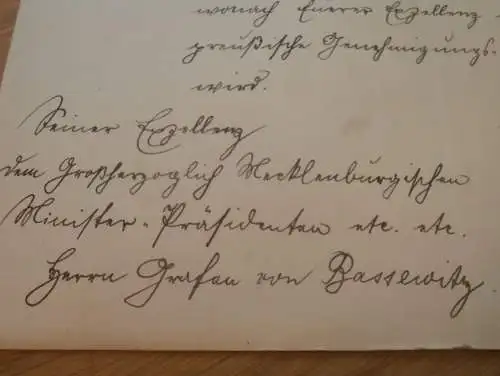 wonach Euerer Exzellenz
preußische Genehmigungs-
wird.
Seiner Exzellenz
dem Großherzoglich Mecklenburgischen
Minister-Präsidenten etc. etc.
Herrn Grafen von Bassewitz